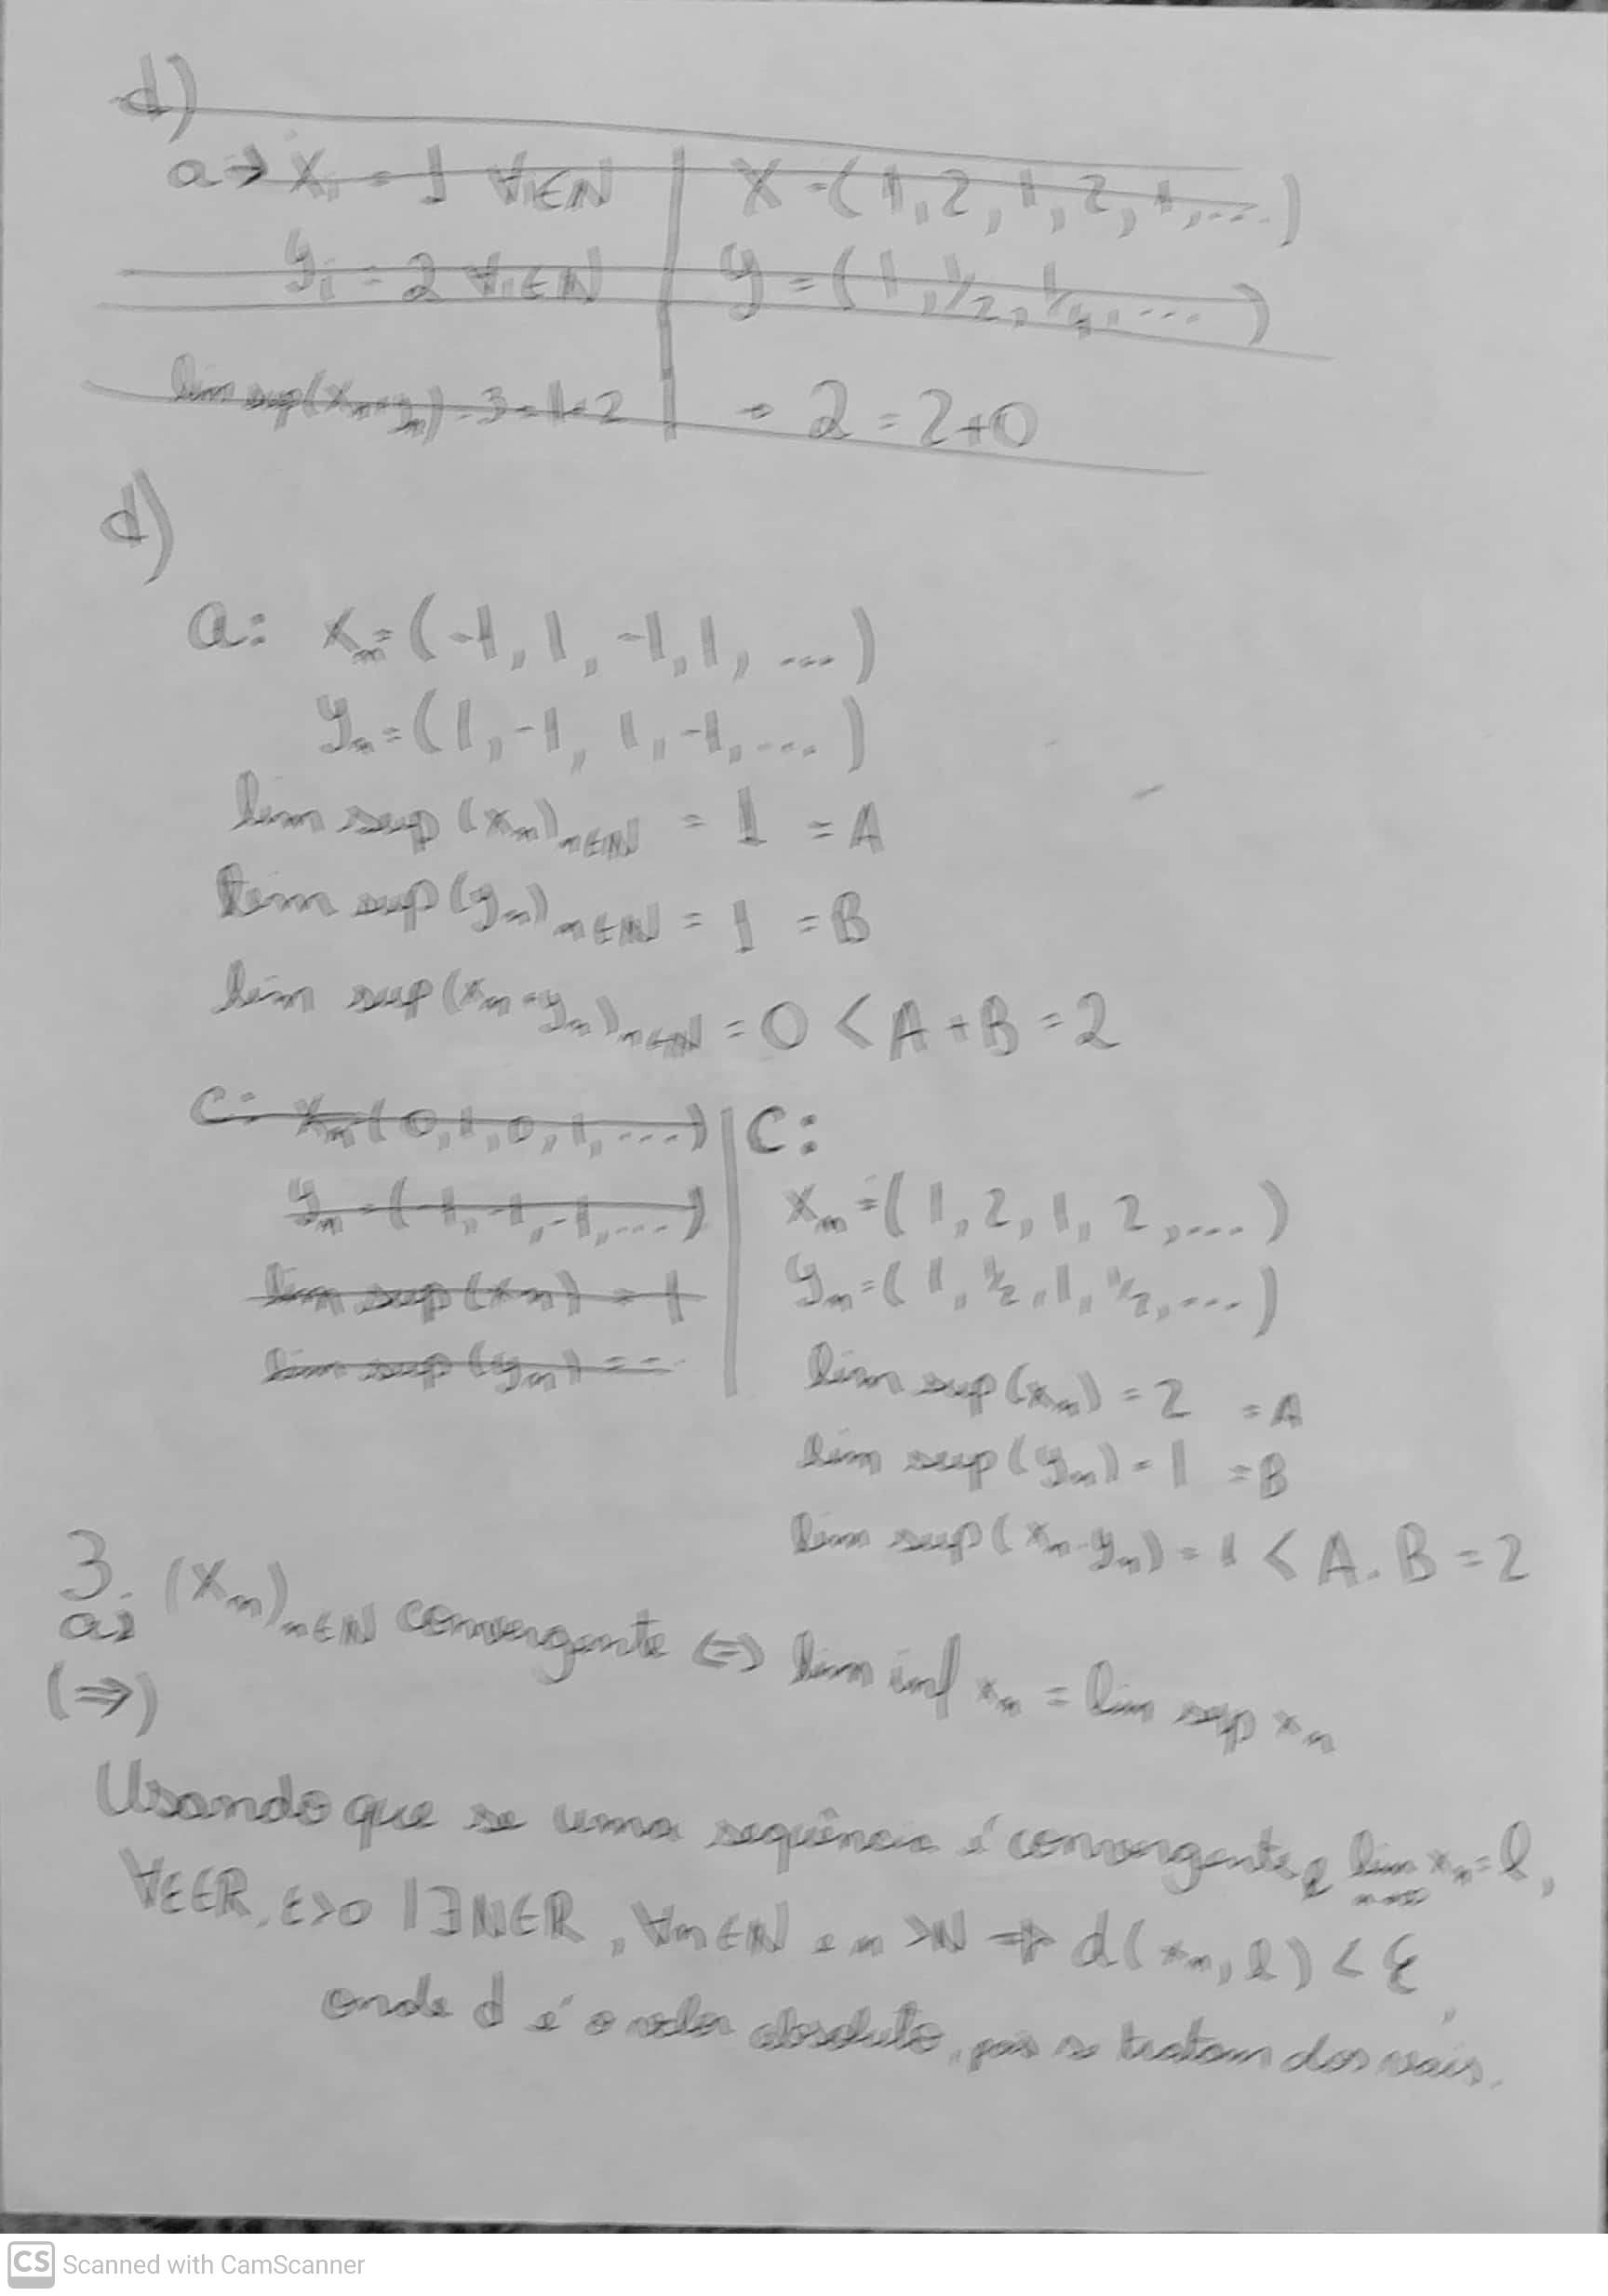 d)
a → x_i = 1 ∀i∈N | X = (1, 2, 1, 2, 1, ...)
y_i = 2 ∀i∈N | y = (1, 1/2, 1/4, ...)
lim sup(x_n+y_n) = 3 = 1+2 | → 2 = 2+0
d)
a: x_n = (-1, 1, -1, 1, ...)
y_n = (1, -1, 1, -1, ...)
lim sup (x_n)_{n∈N} = 1 = A
lim sup (y_n)_{n∈N} = 1 = B
lim sup (x_n + y_n)_{n∈N} = 0 < A + B = 2
c: x_n (0, 1, 0, 1, ...)
y_n = (-1, -1, -1, ...)
lim sup (x_n) = 1
lim sup (y_n) = -
c:
x_n = (1, 2, 1, 2, ...)
y_n = (1, 1/2, 1, 1/2, ...)
lim sup (x_n) = 2 = A
lim sup (y_n) = 1 = B
lim sup (x_n · y_n) = 1 < A . B = 2
3. (x_n)_{n∈N} convergente ⇔ lim inf x_n = lim sup x_n
a)
(⇒)
Usando que se uma sequência é convergente e lim_{n→∞} x_n = l,
∀ε∈R, ε>0 | ∃N∈R, ∀n∈N e n >N ⇒ d(x_n, l) < ε,
onde d é o valor absoluto, pois se tratam dos reais.